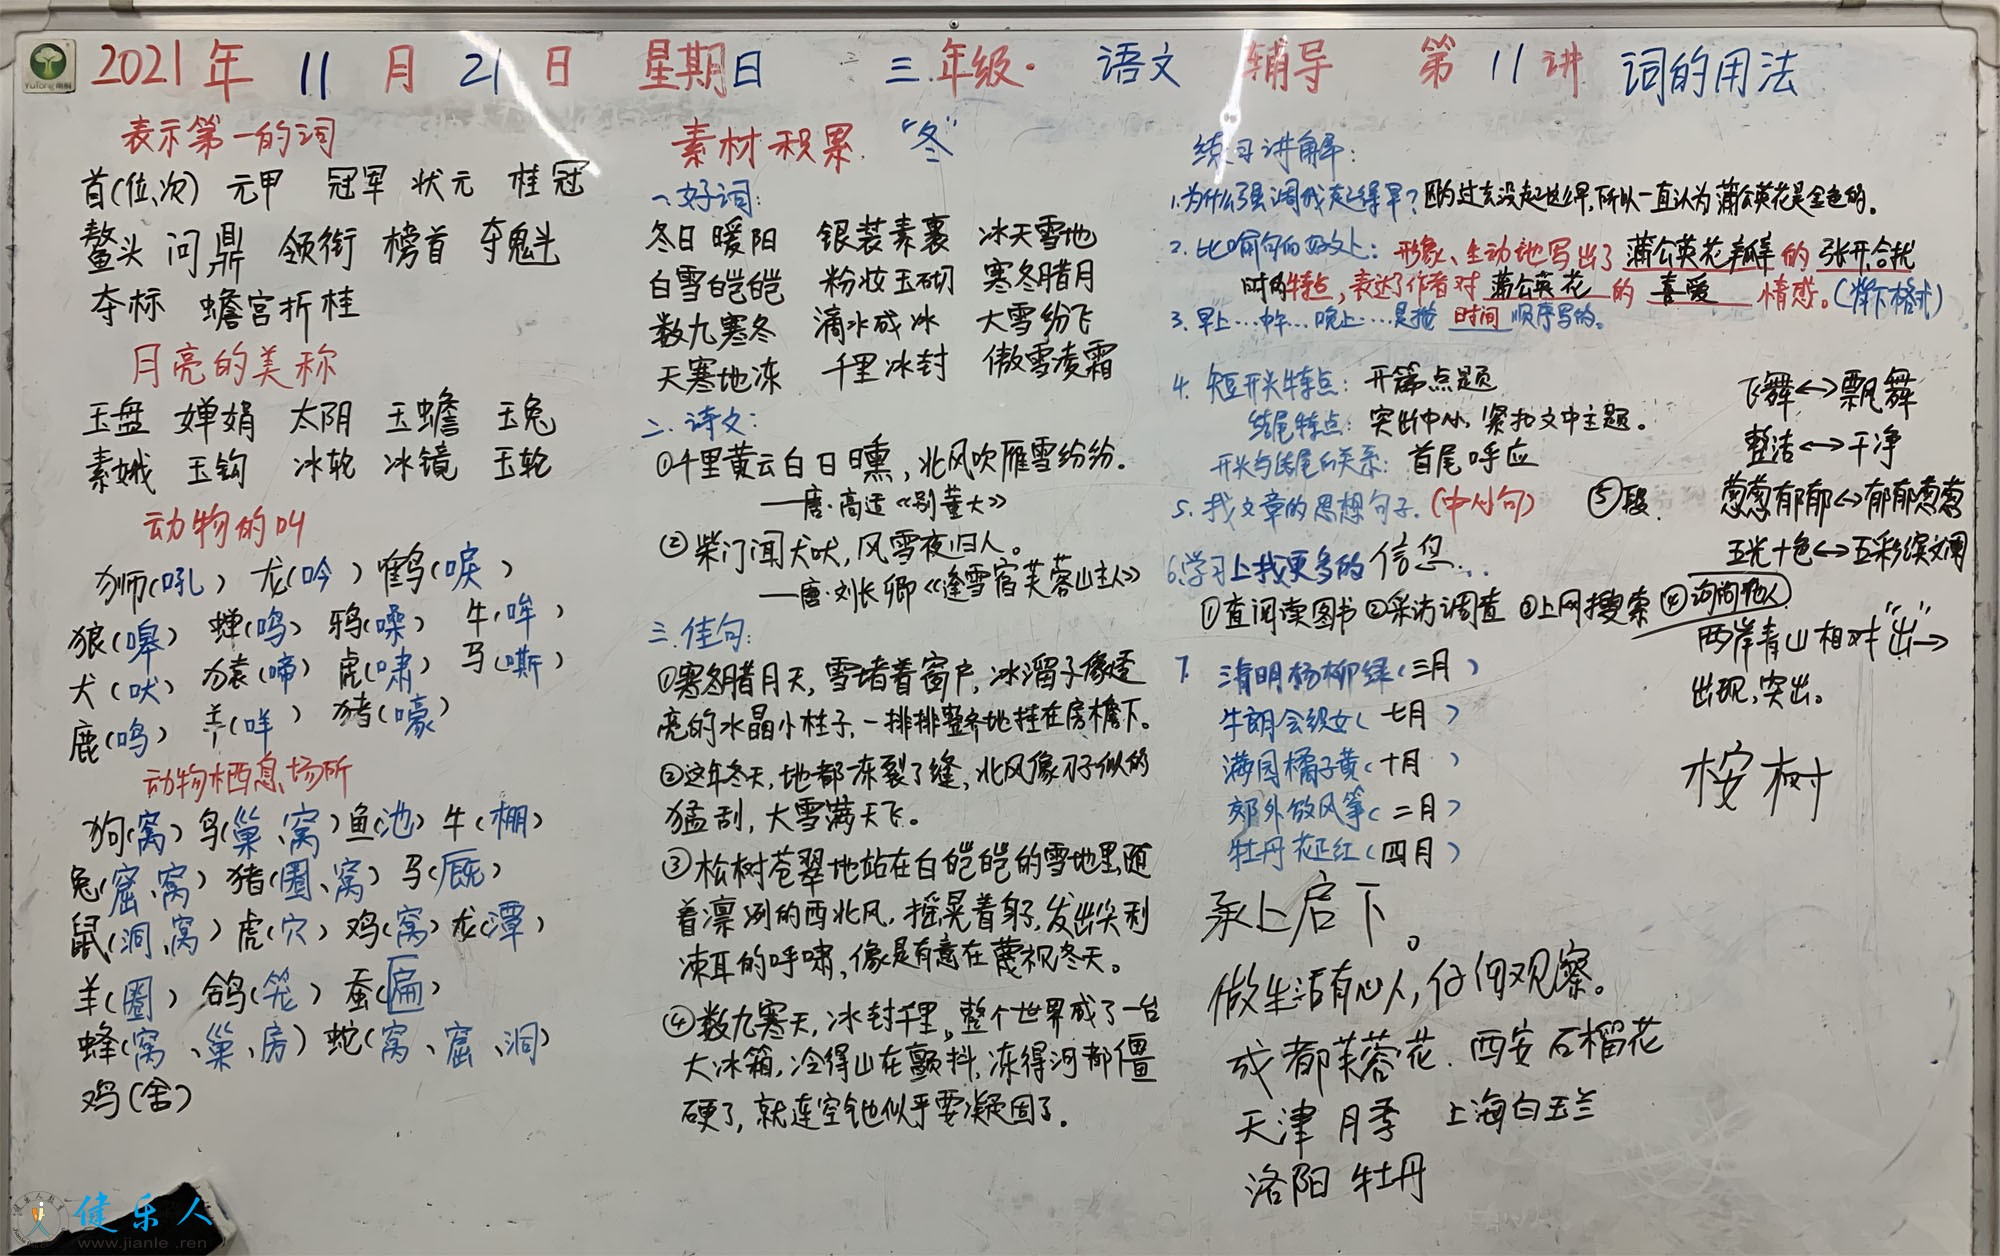 2021年 11月 21日 星期日 三年级·语文 辅导 第11讲 词的用法
表示第一的词
首(位、次) 元甲 冠军 状元 桂冠
鳌头 问鼎 领衔 榜首 夺魁
夺标 蟾宫折桂
月亮的美称
玉盘 婵娟 太阴 玉蟾 玉兔
素娥 玉钩 冰轮 冰镜 玉轮
动物的叫
狮(吼) 龙(吟) 鹤(唳)
狼(嗥) 蝉(鸣) 鸦(噪) 牛(哞)
犬(吠) 猿(啼) 虎(啸) 马(嘶)
鹿(鸣) 羊(咩) 猪(嚎)
动物栖息场所
狗(窝) 鸟(巢、窝) 鱼(池) 牛(棚)
兔(窟、窝) 猪(圈、窝) 马(厩)
鼠(洞、窝) 虎(穴) 鸡(窝) 龙(潭)
羊(圈) 鸽(笼) 蚕(匾)
蜂(窝、巢、房) 蛇(窝、窟、洞)
鸡(舍)
素材积累 “冬”
一、好词:
冬日暖阳 银装素裹 冰天雪地
白雪皑皑 粉妆玉砌 寒冬腊月
数九寒冬 滴水成冰 大雪纷飞
天寒地冻 千里冰封 傲雪凌霜
二、诗文:
①千里黄云白日曛,北风吹雁雪纷纷。
——唐·高适《别董大》
②柴门闻犬吠,风雪夜归人。
——唐·刘长卿《逢雪宿芙蓉山主人》
三、佳句:
①寒冬腊月天,雪堵着窗户,冰溜子像透
亮的水晶小柱子,一排排整齐地挂在房檐下。
②这年冬天,地都冻裂了缝,北风像刀子似的
猛刮,大雪满天飞。
③松树苍翠地站在白皑皑的雪地里,随
着凛冽的西北风,摇晃着身子,发出尖利
刺耳的呼啸,像是有意在蔑视冬天。
④数九寒天,冰封千里,整个世界成了一台
大冰箱,冷得山在颤抖,冻得河都僵
硬了,就连空气也似乎要凝固了。
练习讲解:
1.为什么强调我起得早?因为过去没起过早,所以一直认为蒲公英花是金色的。
2.比喻句的好处上:形象、生动地写出了蒲公英花瓣的张开、合拢
时的特点,表达了作者对蒲公英花的喜爱情感。(背下格式)
3.早上…中午…晚上…是按时间顺序写的。
4.短开头特点:开篇点题
结尾特点:突出中心,紧扣文中主题。
开头与结尾的关系:首尾呼应
5.找文章的思想句子.(中心句) ⑤段.
6.学习上找更多的信息...
①查阅读图书②采访调查③上网搜索④询问他人
7. 清明杨柳绿(三月)
牛朗会织女(七月)
满园橘子黄(十月)
郊外放风筝(二月)
牡丹花正红(四月)
飞舞↔飘舞
整洁↔干净
葱葱郁郁↔郁郁葱葱
五光十色↔五彩缤斓
两岸青山相对“出”→
出现,突出。
桉树
承上启下。
做生活有心人,仔细观察。
成都芙蓉花.西安石榴花
天津月季 上海白玉兰
洛阳牡丹
YuTong雨桐
健乐人
www.jianle.ren